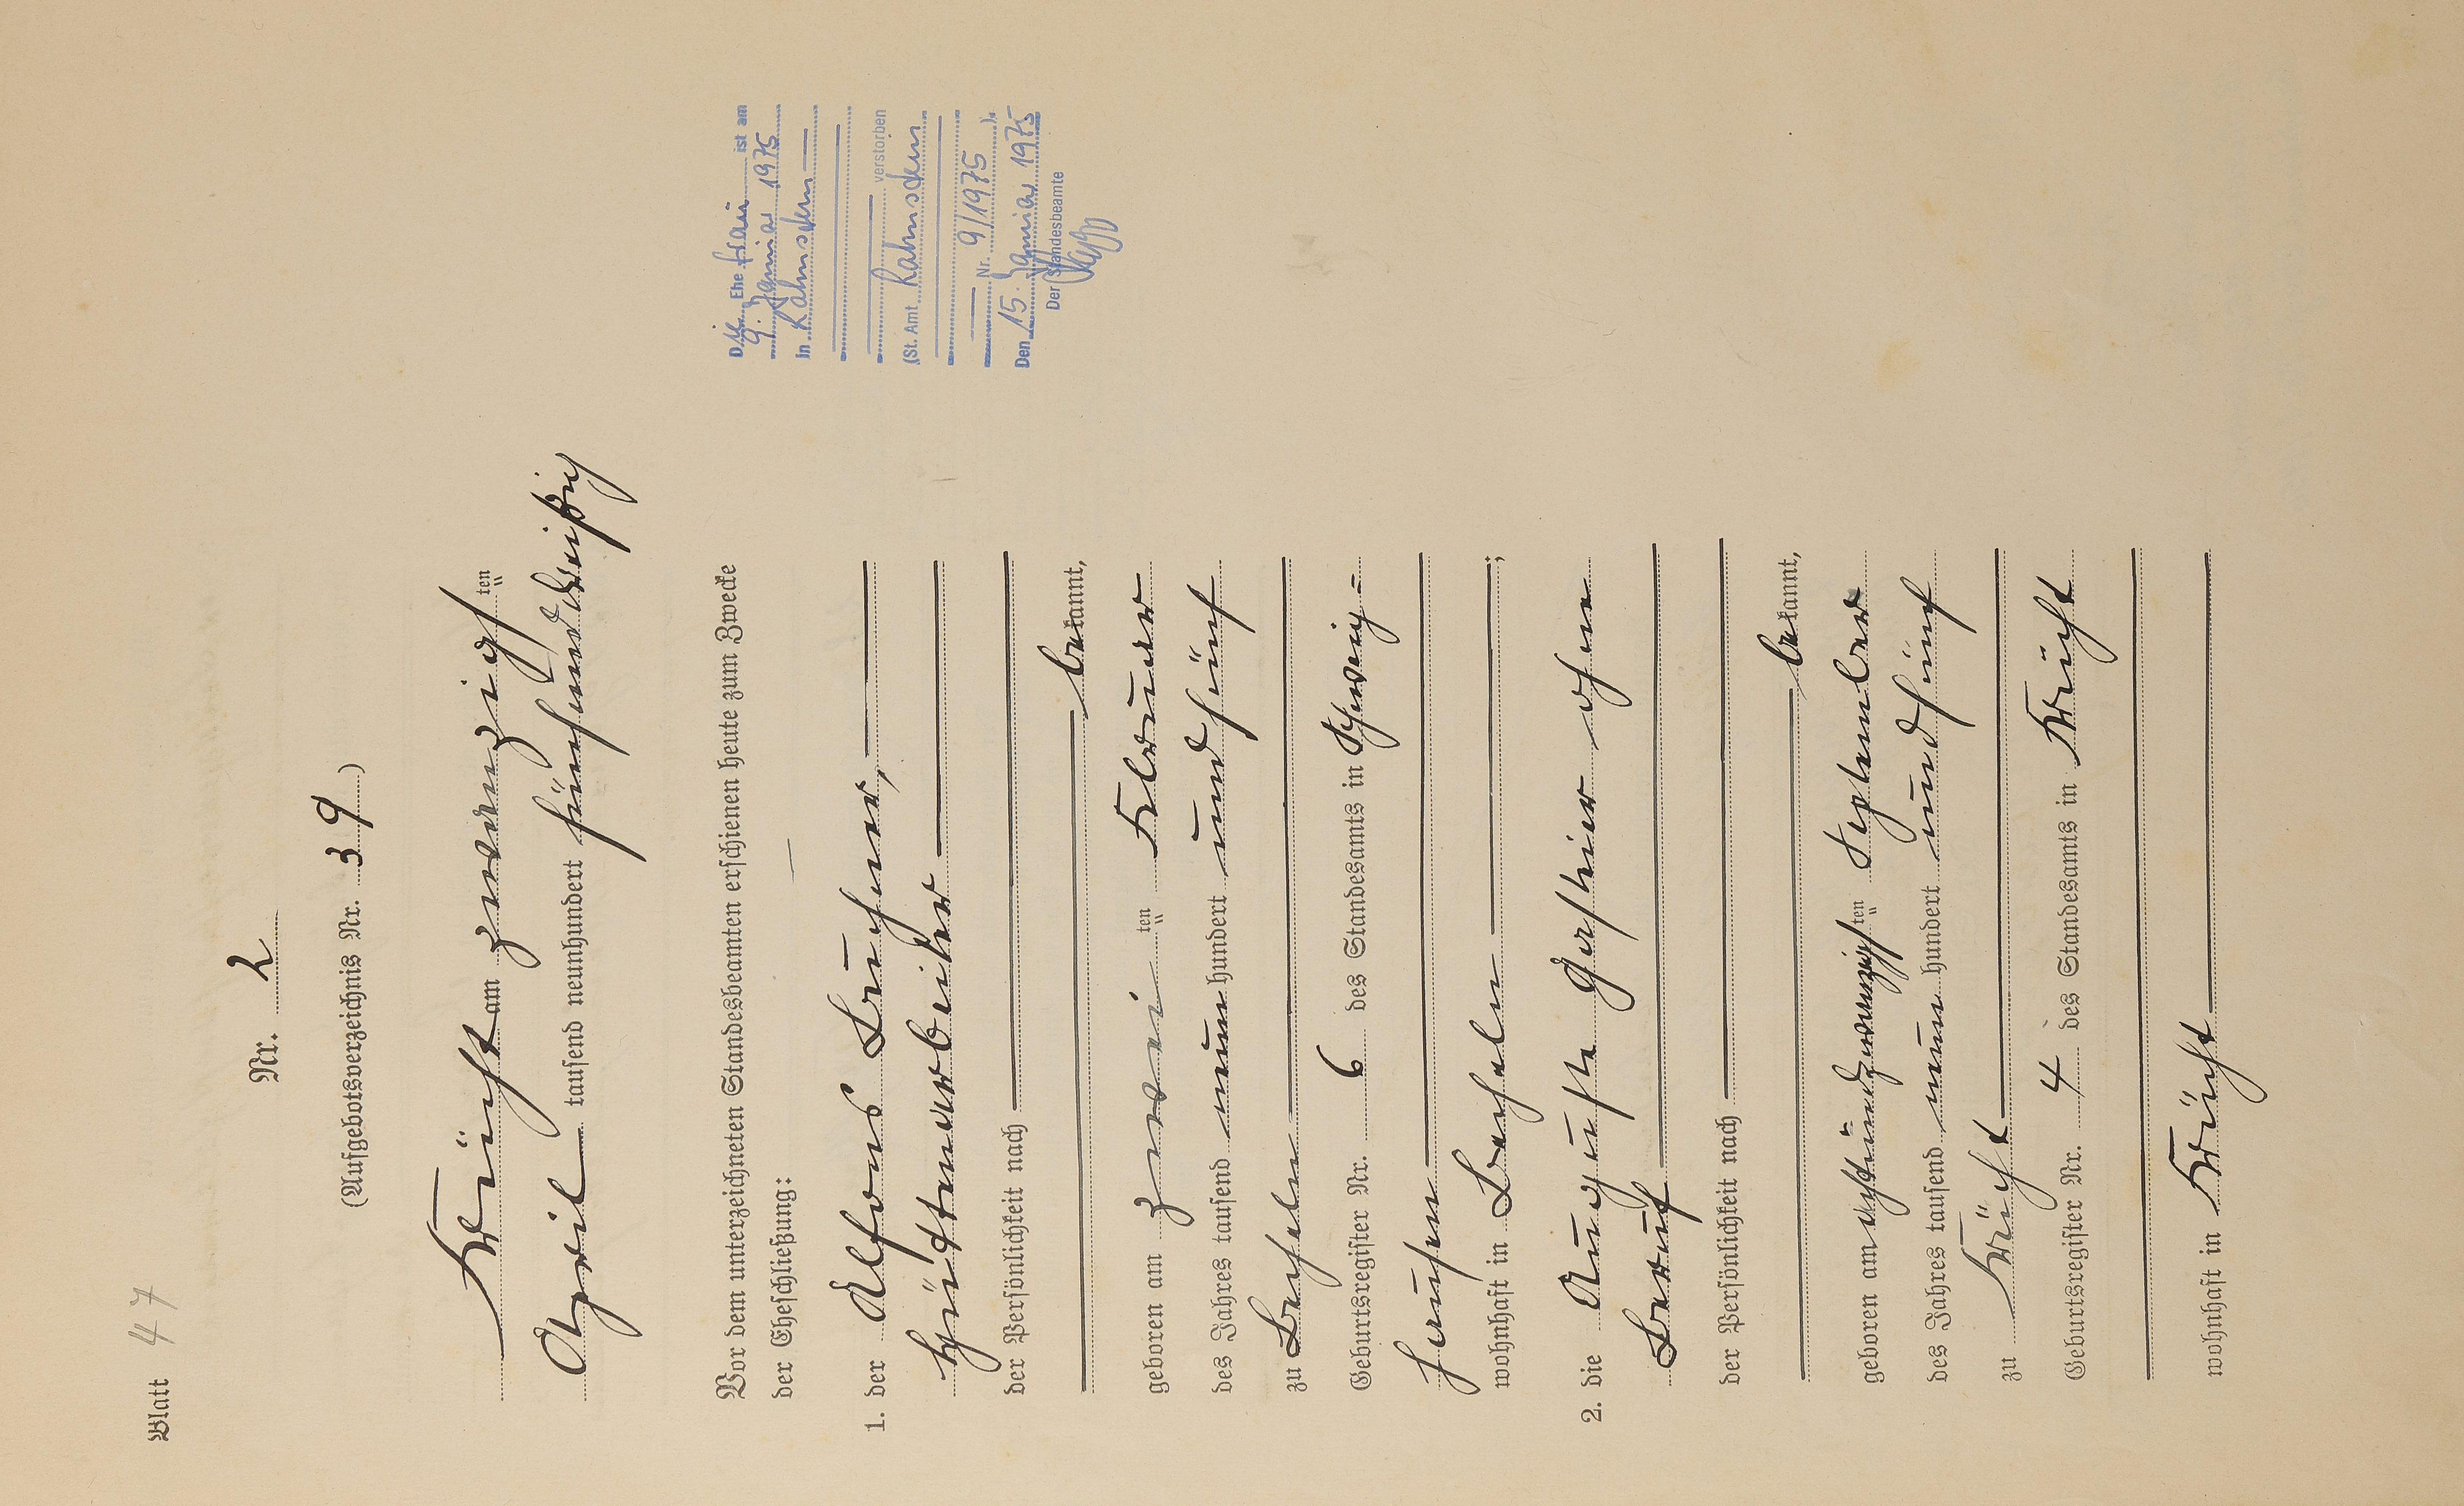 Blatt 47
Nr. 2
(Aufgebotsverzeichnis Nr. 39)
Frücht am zwanzigsten
April tausend neunhundert fünfunddreißig
Vor dem unterzeichneten Standesbeamten erschienen heute zum Zwecke
der Eheschließung:
1. der Alfons Buchner,
Hüttenarbeiter
der Persönlichkeit nach
bekannt,
geboren am zweiten Februar
des Jahres tausend neunhundert und fünf
zu Becheln
Geburtsregister Nr. 6 des Standesamts in Schweig=
hausen
wohnhaft in Becheln;
2. die Auguste Gerstier ohne
Beruf
der Persönlichkeit nach
bekannt,
geboren am achtundzwanzigsten September
des Jahres tausend neunhundert und fünf
zu Frücht
Geburtsregister Nr. 4 des Standesamts in Frücht
wohnhaft in Frücht
Die Ehefrau ist am
9. Januar 1975
In Lahnstein
verstorben
(St. Amt Lahnstein
Nr. 9/1975).
Den 15. Januar 1975
Der Standesbeamte